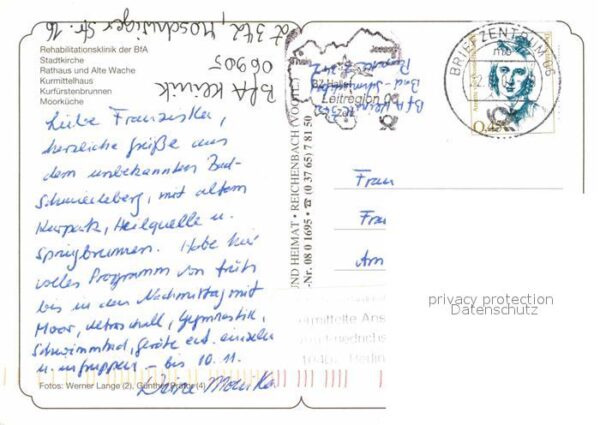 Rehabilitationsklinik der BfA
Stadtkirche
Rathaus und Alte Wache
Kurmittelhaus
Kurfürstenbrunnen
Moorküche
BfA Klinik
06905
Z 342, Moschwiger Str. 16
Liebe Franziska,
herzliche Grüße aus
dem unbekannten Bad-
Schmiedeberg, mit altem
Kurpark, Heilquelle u.
Springbrunnen. Habe hier
volles Programm von früh
bis in den Nachmittag mit
Moor, Ultraschall, Gymnastik,
Schwimmbad, Geräte ect. einzeln
u. in Gruppen – bis 10.11.
Deine Monika
Fotos: Werner Lange (2), Günther (4)
UND HEIMAT • REICHENBACH (VOGTL.)
-Nr. 08 0 1695 • ☎ (0 37 65) 7 81 50
Leitregion 0
BfA Klinik
Bad Schmiedeberg
BRIEFZENTRUM 06
Frau
Fra
Am
ermittelte Ans
privacy protection
Datenschutz